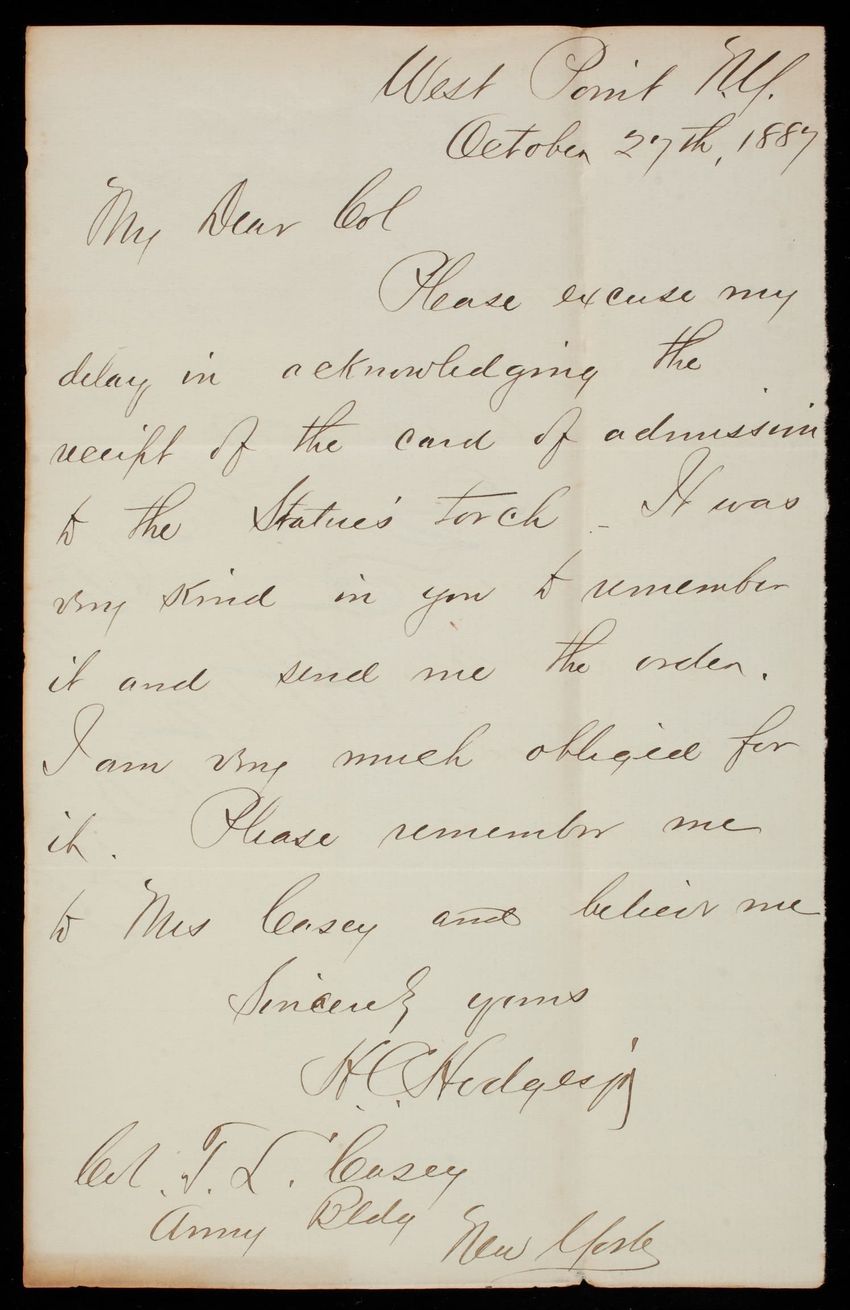 West Point N.Y.
October 27th, 1887
My Dear Col
Please excuse my
delay in acknowledging the
receipt of the card of admission
to the Statue's torch - It was
very kind in you to remember
it and send me the order.
I am very much obliged for
it. Please remember me
to Mrs Casey and believe me
Sincerely yours
H.C. Hodges jr
Col. T. L. Casey
Army Bldg
New York